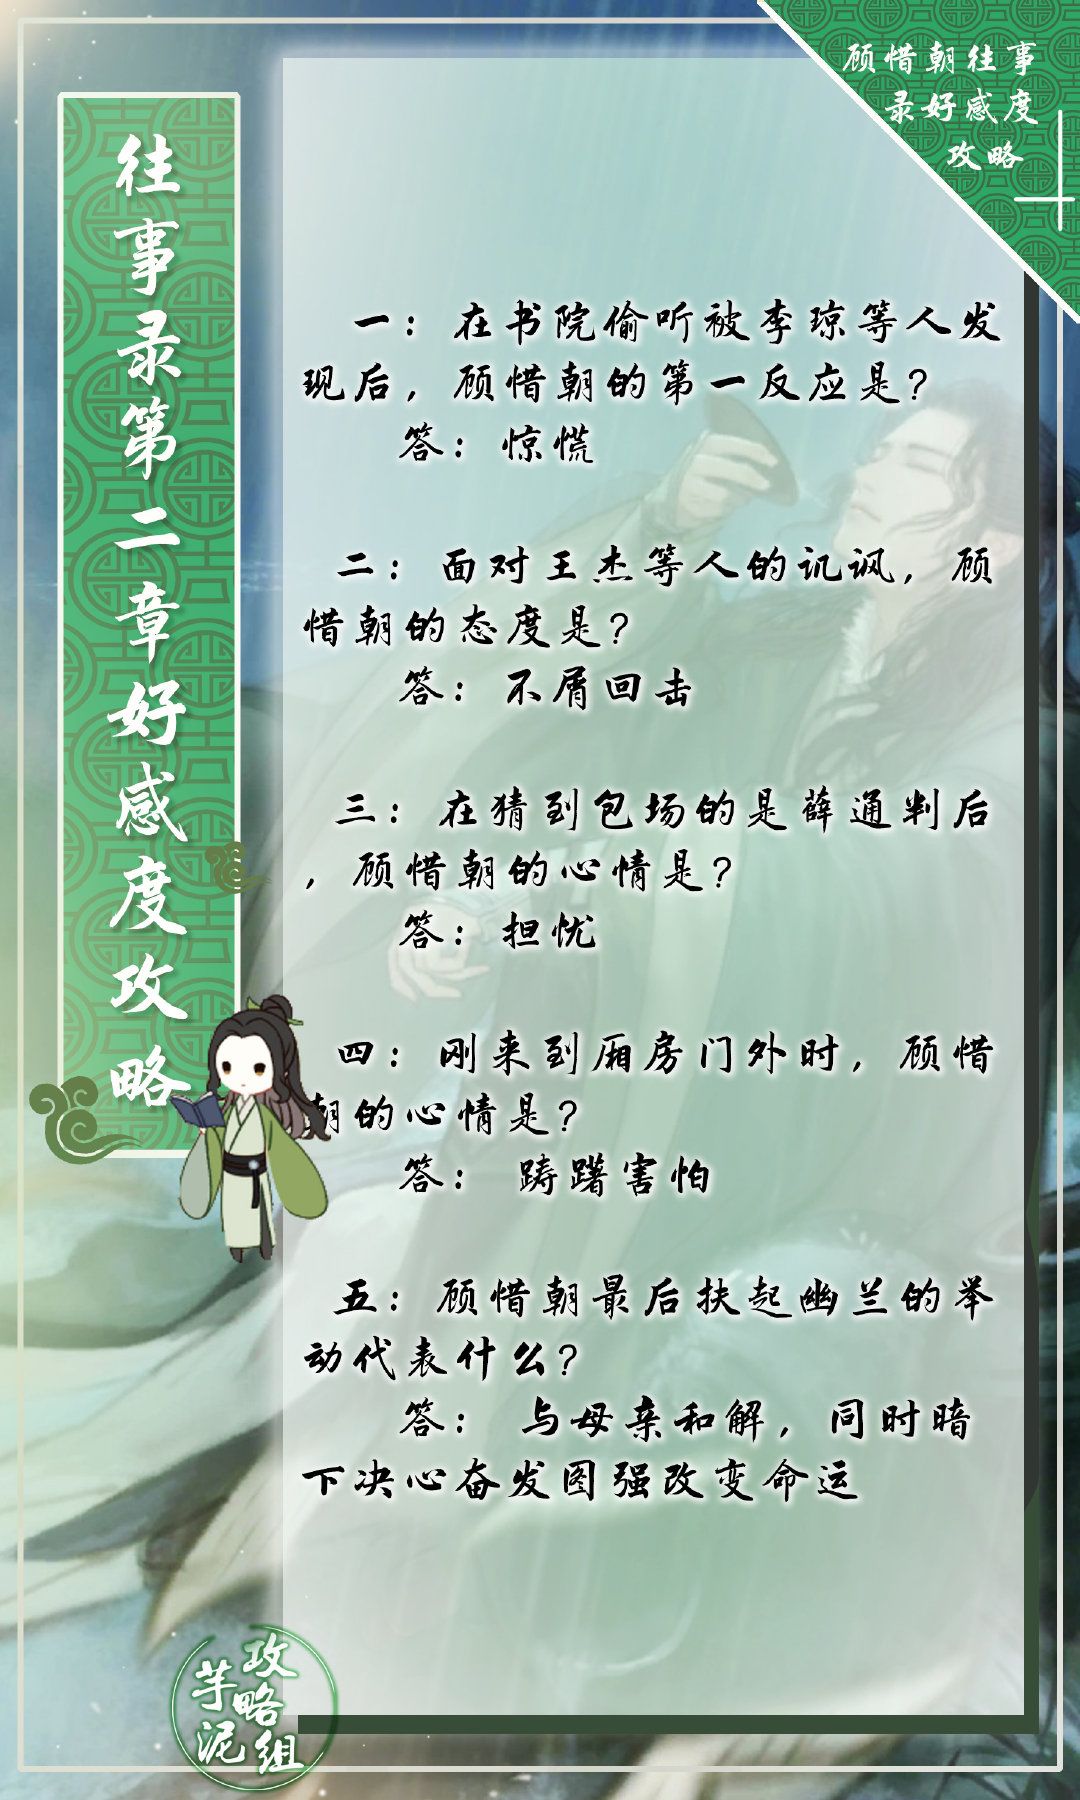 顾惜朝往事
录好感度
攻略
往事录第二章好感度攻略
一：在书院偷听被李琼等人发
现后，顾惜朝的第一反应是？
答：惊慌
二：面对王杰等人的讥讽，顾
惜朝的态度是？
答：不屑回击
三：在猜到包场的是薛通判后
，顾惜朝的心情是？
答：担忧
四：刚来到厢房门外时，顾惜
朝的心情是？
答：踌躇害怕
五：顾惜朝最后扶起幽兰的举
动代表什么？
答：与母亲和解，同时暗
下决心奋发图强改变命运
攻略组
芋泥